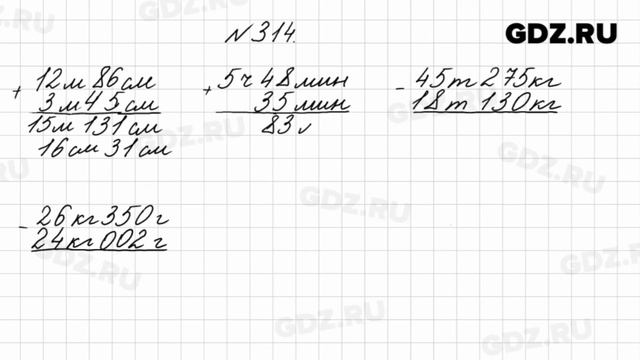 GDZ.RU
N 314.
+ 12 м 86 см
3 м 45 см
15 м 131 см
16 см 31 см
+ 5 ч 48 мин
35 мин
83
- 45 т 275 кг
18 т 130 кг
- 26 кг 350 г
24 кг 002 г
GDZ.RU
GDZ.RU
GDZ.RU
GDZ.RU
GDZ.RU
GDZ.RU
GDZ.RU
GDZ.RU